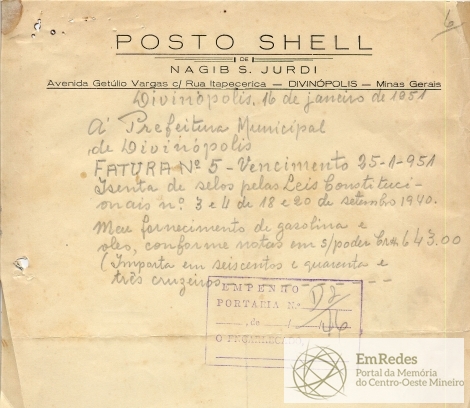 6
POSTO SHELL
DE
NAGIB S. JURDI
Avenida Getúlio Vargas c/ Rua Itapecerica — DIVINÓPOLIS — Minas Gerais
Divinópolis, 16 de janeiro de 1951
Á Prefeitura Municipal
de Divinópolis
FATURA Nº 5 - Vencimento 25-1-951
Isenta de selos pelas Leis Constituci-
onais n.º 3 e 4 de 18 e 20 de setembro 1940.
Meu fornecimento de gasolina e
oleo, conforme notas em s/poder Cr$ 643.00
(Importa em seiscentos e quarenta e
três cruzeiros
EMPENHO
PORTARIA N.º
de
O ENCARREGADO
EmRedes
Portal da Memória
do Centro-Oeste Mineiro